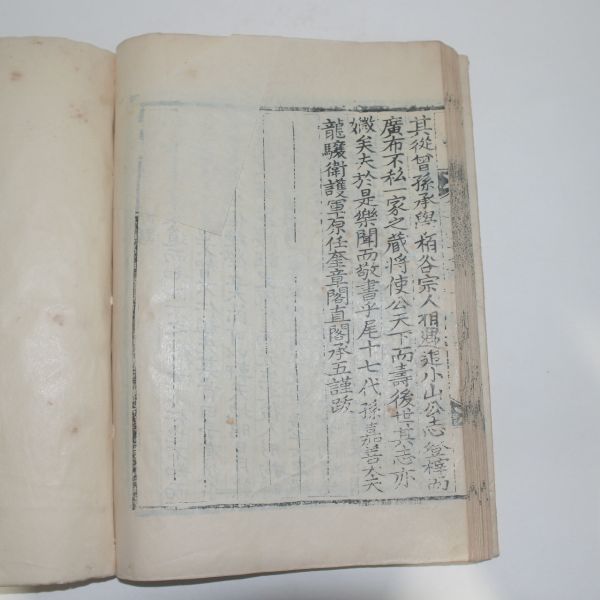 其從曾孫承學栢谷宗人相遇追小山公志登梓而
廣布不私一家之藏將使公天下而壽後世其志亦
微矣夫於是樂聞而敬書乎尾十七代孫嘉善大夫
龍驤衛護軍原任奎章閣直閣承五謹跋